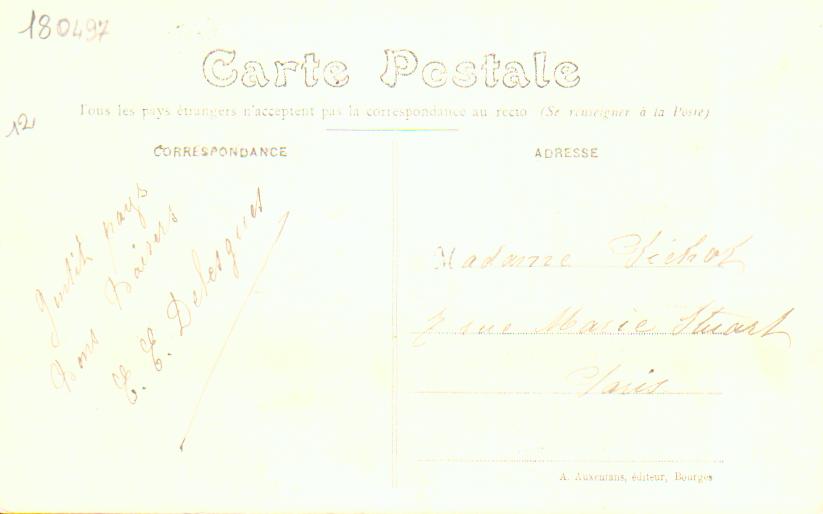 180497
Carte Postale
Tous les pays étrangers n'acceptent pas la correspondance au recto (Se renseigner à la Poste)
12
CORRESPONDANCE
ADRESSE
Gentil pays
Bons Baisers
E. E. Delesques
Madame Pichot
7 rue Marie Stuart
Paris
A. Auxenfans, éditeur, Bourges